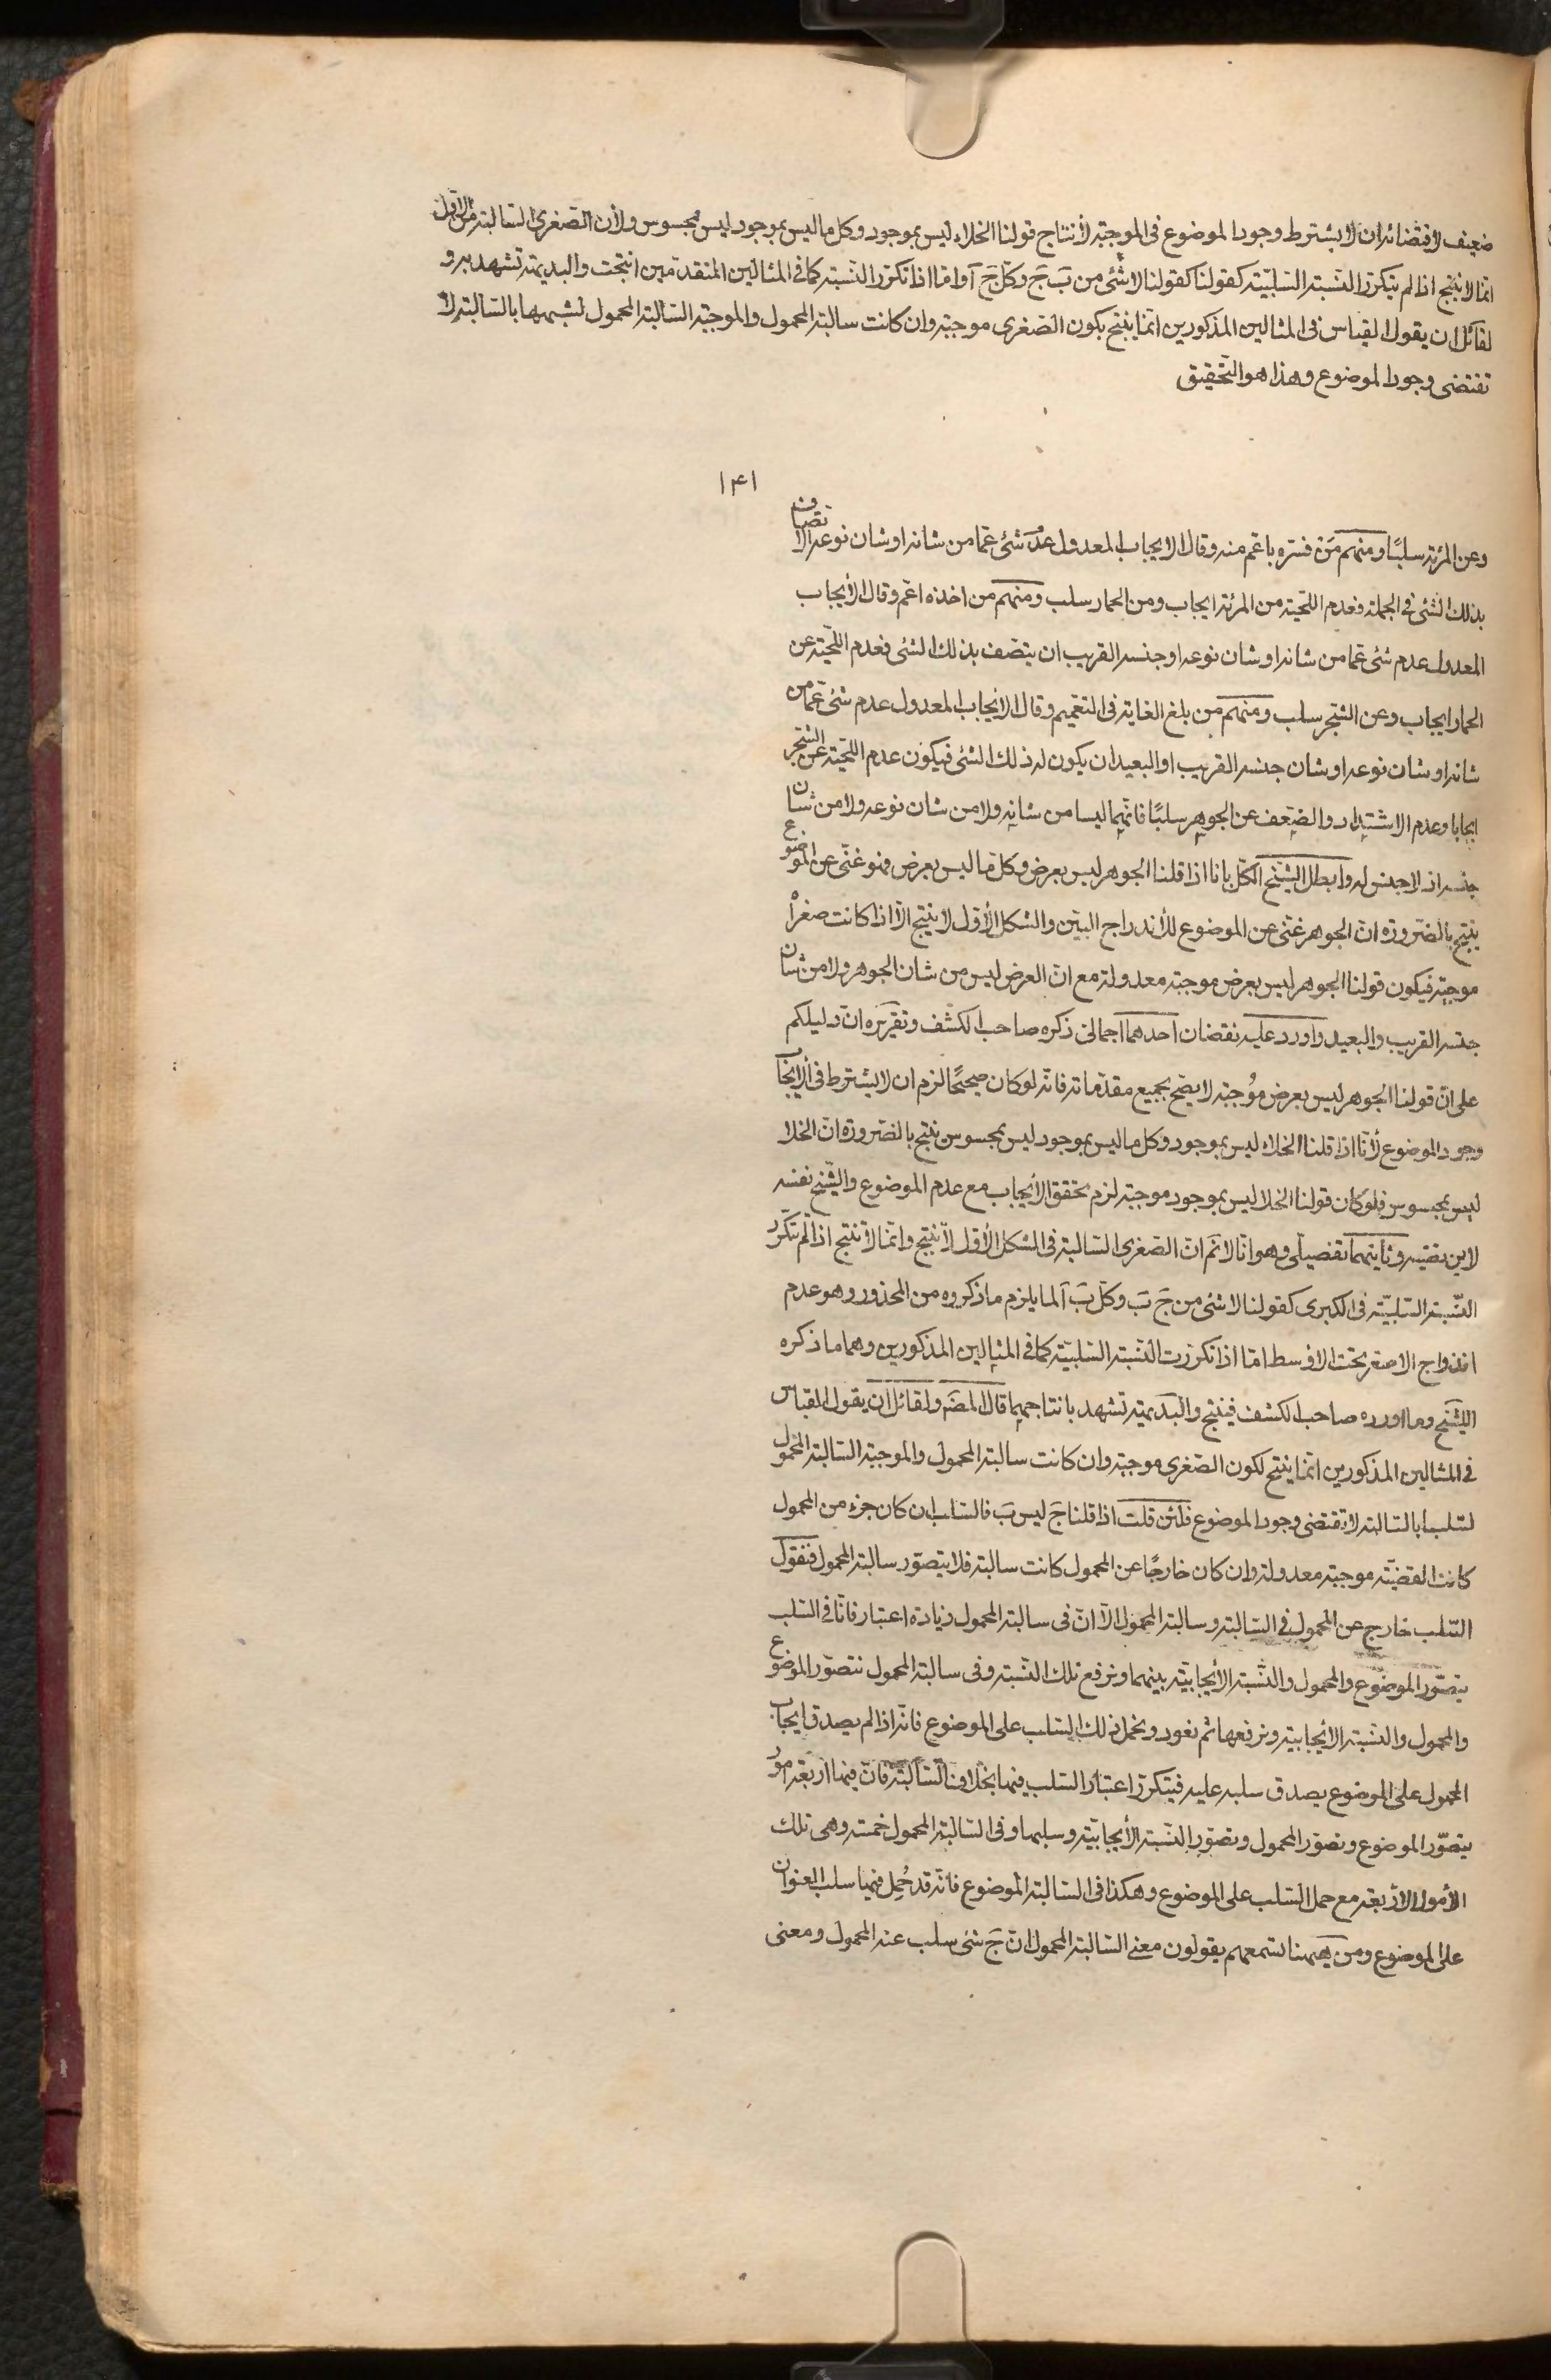 ضعيف لاقتضائه ان لا يشترط وجود الموضوع فى الموجبة لانتاج قولنا الخلاء ليس بموجود وكل ما ليس بموجود ليس بمحسوس ولان الصغرى السالبة من الاول
انما لا ينتج اذا لم يتكرر النسبة السلبية كقولنا كقولنا لا شئ من بَ جَ وكل جَ آ واما اذا تكرر النسبة كما فى المثالين المتقدمين انتجت والبديهة تشهد به و
لقائل ان يقول القياس فى المثالين المذكورين انما ينتج بكون الصغرى موجبة وان كانت سالبة المحمول والموجبة السالبة المحمول لشبهها بالسالبة لا
تقتضى وجود الموضوع وهذا هو التحقيق
١٤١
وعن المرئة سلبًا ومنهم من فسّره باعم منه وقال الايجاب المعدول عدم شئ عما من شانه او شان نوعه الاتصاف
بذلك الشئ فى الجملة فعدم اللحية من المرئة ايجاب ومن الحمار سلب ومنهم من اخذه اعم وقال الايجاب
المعدول عدم شئ عما من شانه او شان نوعه او جنسه القريب ان يتصف بذلك الشئ فعدم اللحية عن
الحمار ايجاب وعن الشجر سلب ومنهم من بلغ الغاية فى التعميم وقال الايجاب المعدول عدم شئ عما من
شانه او شان نوعه او شان جنسه القريب او البعيد ان يكون له ذلك الشئ فيكون عدم اللحية عن الشجر
ايجابا وعدم الاشتداد والضعف عن الجوهر سلبًا فانهما ليسا من شانه ولا من شان نوعه ولا من شان
جنسه اذ لا جنس له وابطل الشيخ الكل بانا اذا قلنا الجوهر ليس بعرض وكل ما ليس بعرض فهو غنى عن الموضوع
ينتج بالضرورة ان الجوهر غنى عن الموضوع للاندراج البين والشكل الاول لا ينتج الا اذا كانت صغراه
موجبة فيكون قولنا الجوهر ليس بعرض موجبة معدولة مع ان العرض ليس من شان الجوهر ولا من شان
جنسه القريب والبعيد واورد عليه نقضان احدهما اجمالى ذكره صاحب الكشف وتقريره ان دليلكم
على ان قولنا الجوهر ليس بعرض موجبة لا يصح بجميع مقدماته فانه لو كان صحيحًا لزم ان لا يشترط فى الايجاب
وجود الموضوع لانا اذا قلنا الخلاء ليس بموجود وكل ما ليس بموجود ليس بمحسوس ينتج بالضرورة ان الخلا
ليس بمحسوس فلو كان قولنا الخلا ليس بموجود موجبة لزم تحقق الايجاب مع عدم الموضوع والشيخ نفسه
لا يرتضيه وثانيهما تفصيلى وهو انا لا نم ان الصغرى السالبة فى الشكل الاول لا ينتج وانما لا تنتج اذا لم تكرر
النسبة السلبية فى الكبرى كقولنا لا شئ من جَ بَ وكل بَ آ لما يلزم ما ذكروه من المحذور وهو عدم
اندراج الاصغر تحت الاوسط اما اذا تكررت النسبة السلبية كما فى المثالين المذكورين وهما ما ذكره
الشيخ وما اورده صاحب الكشف فينتج والبديهية تشهد بانتاجهما قال المصَ ولقائل ان يقول القياس
فى المثالين المذكورين انما ينتج لكون الصغرى موجبة وان كانت سالبة المحمول والموجبة السالبة المحمول
لشبهها بالسالبة لا تقتضى وجود الموضوع فلئن قلت اذا قلنا جَ ليس بَ فالسلب ان كان جزء من المحمول
كانت القضية موجبة معدولة وان كان خارجًا عن المحمول كانت سالبة فلا يتصور سالبة المحمول فنقول
السلب خارج عن المحمول فى السالبة وسالبة المحمول الا ان فى سالبة المحمول زيادة اعتبار فانا فى السلب
يتصور الموضوع والمحمول والنسبة الايجابية بينهما ونرفع تلك النسبة وفى سالبة المحمول نتصور الموضوع
والمحمول والنسبة الايجابية ونرفعها ثم نعود ونحمل ذلك السلب على الموضوع فانه اذا لم يصدق ايجاب
المحمول على الموضوع يصدق سلبه عليه فيتكرر اعتبار السلب فيها بخلاف السالبة فان فيها اربعة امور
يتصور الموضوع وتصور المحمول وتصور النسبة الايجابية وسلبها وفى السالبة المحمول خمسة وهى تلك
الامور الاربعة مع حمل السلب على الموضوع وهكذا فى السالبة الموضوع فانه قد حُمل فيها سلب العنوان
على الموضوع ومن ههنا تسمعهم يقولون معنى السالبة المحمول ان جَ شئ سلب عنه المحمول ومعنى